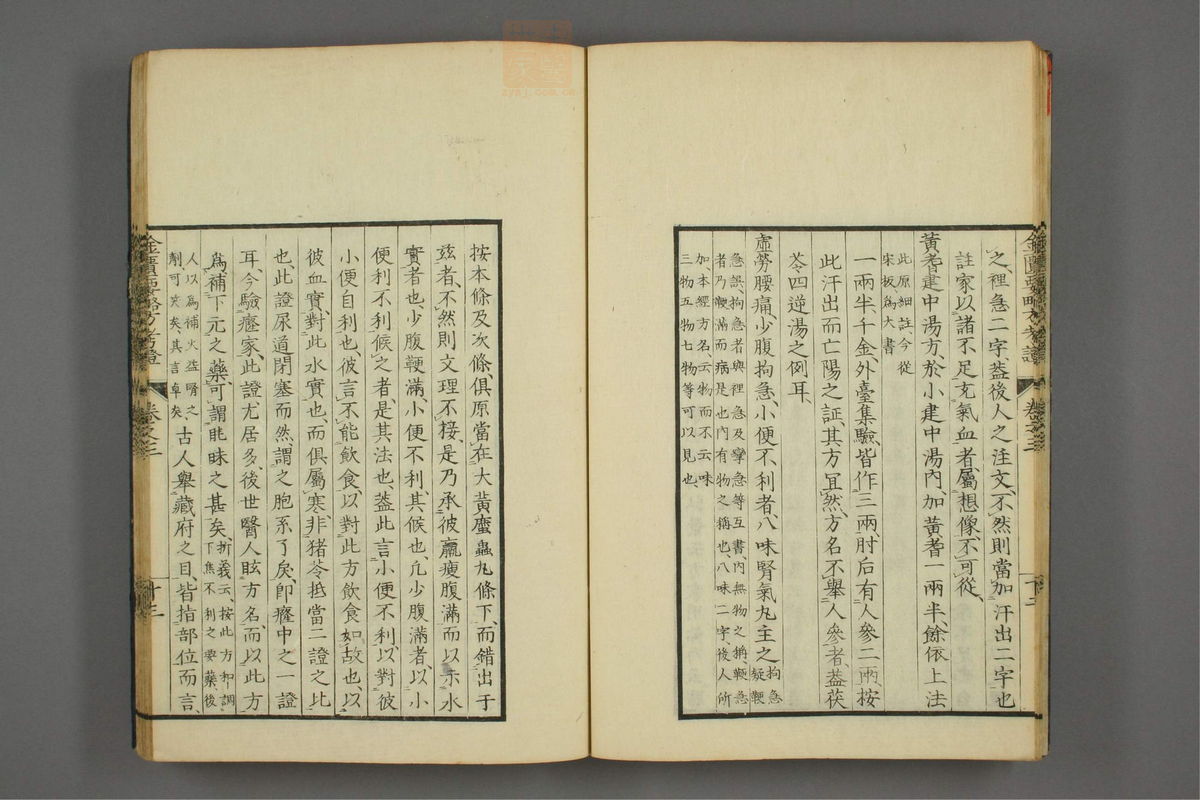 之、裡急二字、蓋後人之注文、不然則當加汗出二字也
註家以諸不足充氣血者、屬想像、不可從、
黃耆建中湯方、於小建中湯內、加黃耆一兩半、餘依上法
此原細註今從
宋板為大書
一兩半、千金、外臺集驗、皆作三兩、肘后有人參二兩、按
此汗出而亡陽之証、其方宜然、方名不舉人參者、蓋茯
苓四逆湯之例耳、
虛勞腰痛、少腹拘急、小便不利者、八味腎氣丸主之
拘急
疑鞕
急誤、拘急者與裡急及攣急等互書、內無物之稱、鞕急
者乃鞕滿而病是也、內有物之稱也、八味二字、後人所
加、本經方名、云物而不云味
三物五物七物等可以見也、
金匱要略 考證
卷之三
十二
按本條及次條、俱原當在大黃䗪蟲丸條下、而錯出于
茲者、不然則文理不接、是乃承彼羸瘦腹滿而以示水
實者也、少腹鞕滿、小便不利、其候也、凡少腹滿者、以小
便利不利候之者、是其法也、蓋此言小便不利、以對彼
小便自利也、彼言不能飲食、以對此方飲食如故也、以
彼血實、對此水實也、而俱屬寒、非豬苓抵當二證之比
也、此證尿道閉塞而然、謂之胞系了戾、即癃中之一證
耳、今驗癃家、此證尤居多、後世醫人眩方名、而以此方
為補下元之藥、可謂眊昧之甚矣、
折義云、按此方和調
下焦不利之要藥、後
人以為補火益腎之
劑、可笑矣、其言卓矣、
古人舉藏府之目、皆指部位而言、
金匱要略 考證
卷之三
十三